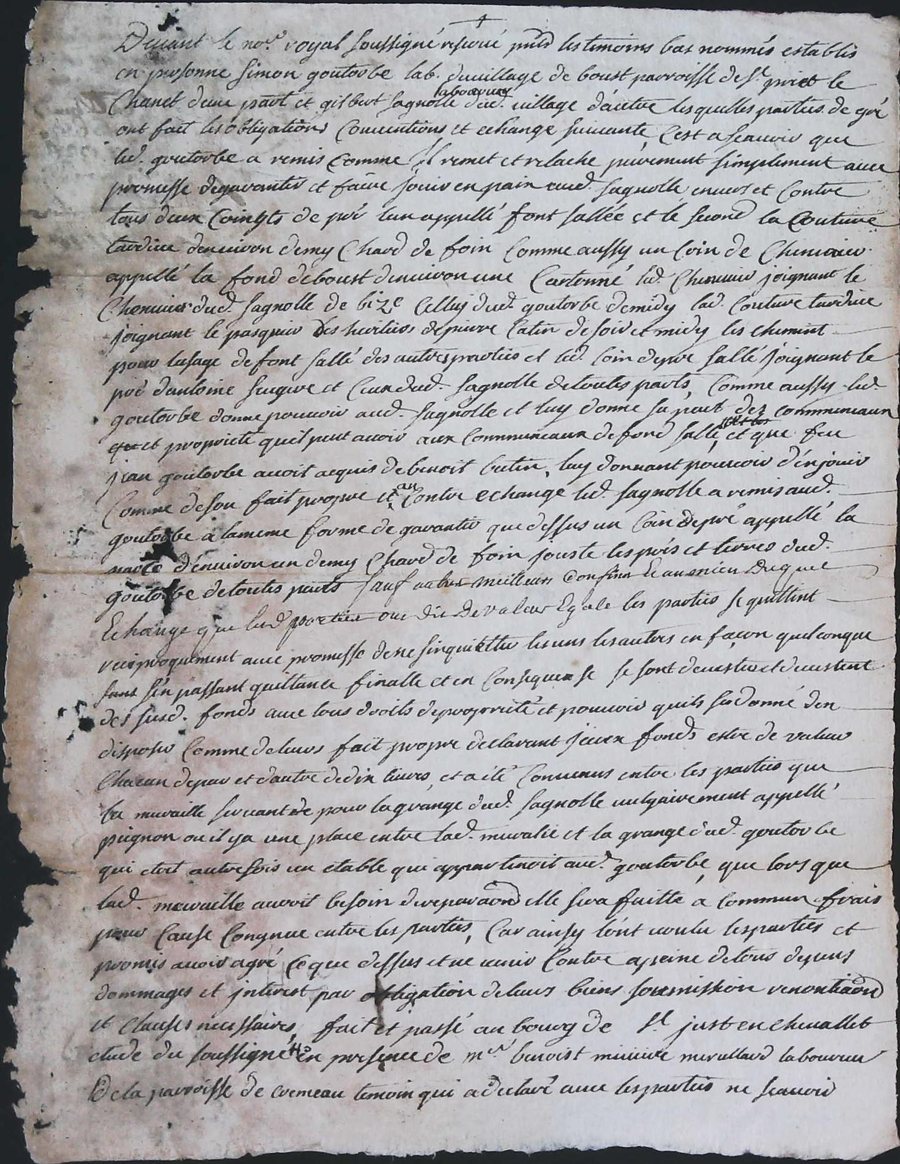 Devant le nore royal soussigné reservé pnts les temoins bas nommés establis
en personne Simon goutorbe lab. du village de boust parroisse de St priest le
laboureur
Chanet d'une part et gilbert fagnolle dud. village d'autre lesquelles parties de gré
ont fait les obligations Conventions et echange suivante, C'est a scavoir que
led. goutorbe a remis comme Jl remet et relache purement simplement avec
promesse de garantir et faire jouir en paix aud. fagnolle envers et Contre
tous deux Coingts de pré l'un appellé font sallée et le second la Couture
tardive d'environ demy Chard de foin Comme aussy un Coin de Chenvier
appellé la fond de boust d'environ une Cartonné led. Chenvier joignant le
Chenvier dud. fagnolle de bize Celluy dud. goutorbe de midy lad. Couture tardive
joignant le pasquier des heritiers de pierre Catin de soir et midy les chemint
pour lusage de font sallé des autres parties et led. Coin de pré sallé joignant le
pré d'antoine et Ceux dud. fagnolle de toutes parts, Comme aussy led.
goutorbe donne pouvoir aud. fagnolle et luy donne sa part des communeaux
et propriété qu'il peut avoir aux Communeaux de fond sallé, et que feu
jean goutorbe avoit acquis de benoit butin, luy donnant pouvoir d'en jouir
Comme de son fait propre et en Contre echange led. fagnolle a remis aud.
goutorbe a la meme forme de garantir que dessus un Coin de pré appellé la
d'environ un demy Chard de foin jouste les prés et terres dud.
goutorbe de toutes parts sauf autres meilleurs Confins
Echange que lesd. parties ont dit de valeur Egale les parties se quittent
reciproquement avec promesse de ne s'inquietter les uns les autres en façon quelconque
s'en passant quittance finalle et en Consequense se sont devestu et devestent
des susd. fonds avec tous droits de propriete et pouvoir qu'ils se donné d'en
disposer Comme de leurs fait propre declarant jceux fonds estre de valeur
Chacun de part et d'autre de dix livres, et a été Convenus entre les parties que
la muraille servant de pour la grange dud. fagnolle vulgairement appellé
pignon ou il y a une place entre lad. muralie et la grange dud. goutorbe
qui etoit autrefois un etable qui appartenoit aud. goutorbe, que lors que
lad. muraille auroit besoin de reparaon elle sera faitte a commun frais
pour Cause Congnue entre les parties, Car ainsy l'ont voulu les parties et
promis avoir agré Ce que dessus et ne venir Contre a peine de tous depens
dommages et jnterest par obligation de leurs biens soumission renontiaon
et clauses necessaires, fait et passé au bourg de St just en chevallet
etude du soussigné en presence de mre benoist laboureur
De la parroisse de cremeau temoin qui a declaré avec les parties ne scavoir